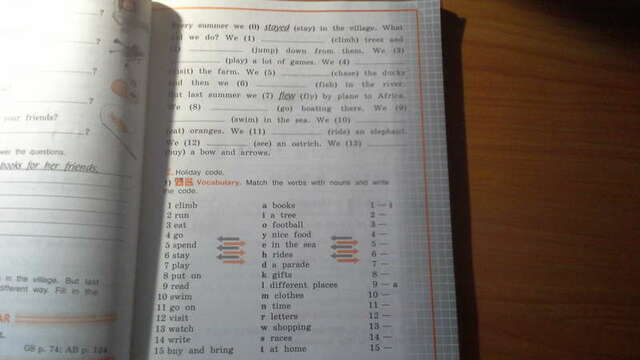 ?
?
your friends?
?
wer the questions.
books for her friends.
s in the village. But last
different way. Fill in the
AR
GS p. 74; AB p. 124
every summer we (0) stayed (stay) in the village. What
we do? We (1) (climb) trees and
(jump) down from them. We (3)
(play) a lot of games. We (4)
(visit) the farm. We (5) (chase) the ducks
and then we (6) (fish) in the river.
But last summer we (7) flew (fly) by plane to Africa.
We (8) (go) boating there. We (9)
(swim) in the sea. We (10)
(eat) oranges. We (11) (ride) an elephant.
We (12) (see) an ostrich. We (13)
(buy) a bow and arrows.
Holiday code.
Vocabulary. Match the verbs with nouns and write
the code.
1 climb a books 1 – i
2 run i a tree 2 –
3 eat o football 3 –
4 go y nice food 4 –
5 spend e in the sea 5 –
6 stay h rides 6 –
7 play d a parade 7 –
8 put on k gifts 8 –
9 read l different places 9 – a
10 swim m clothes 10 –
11 go on n time 11 –
12 visit r letters 12 –
13 watch w shopping 13 –
14 write s races 14 –
15 buy and bring t at home 15 –